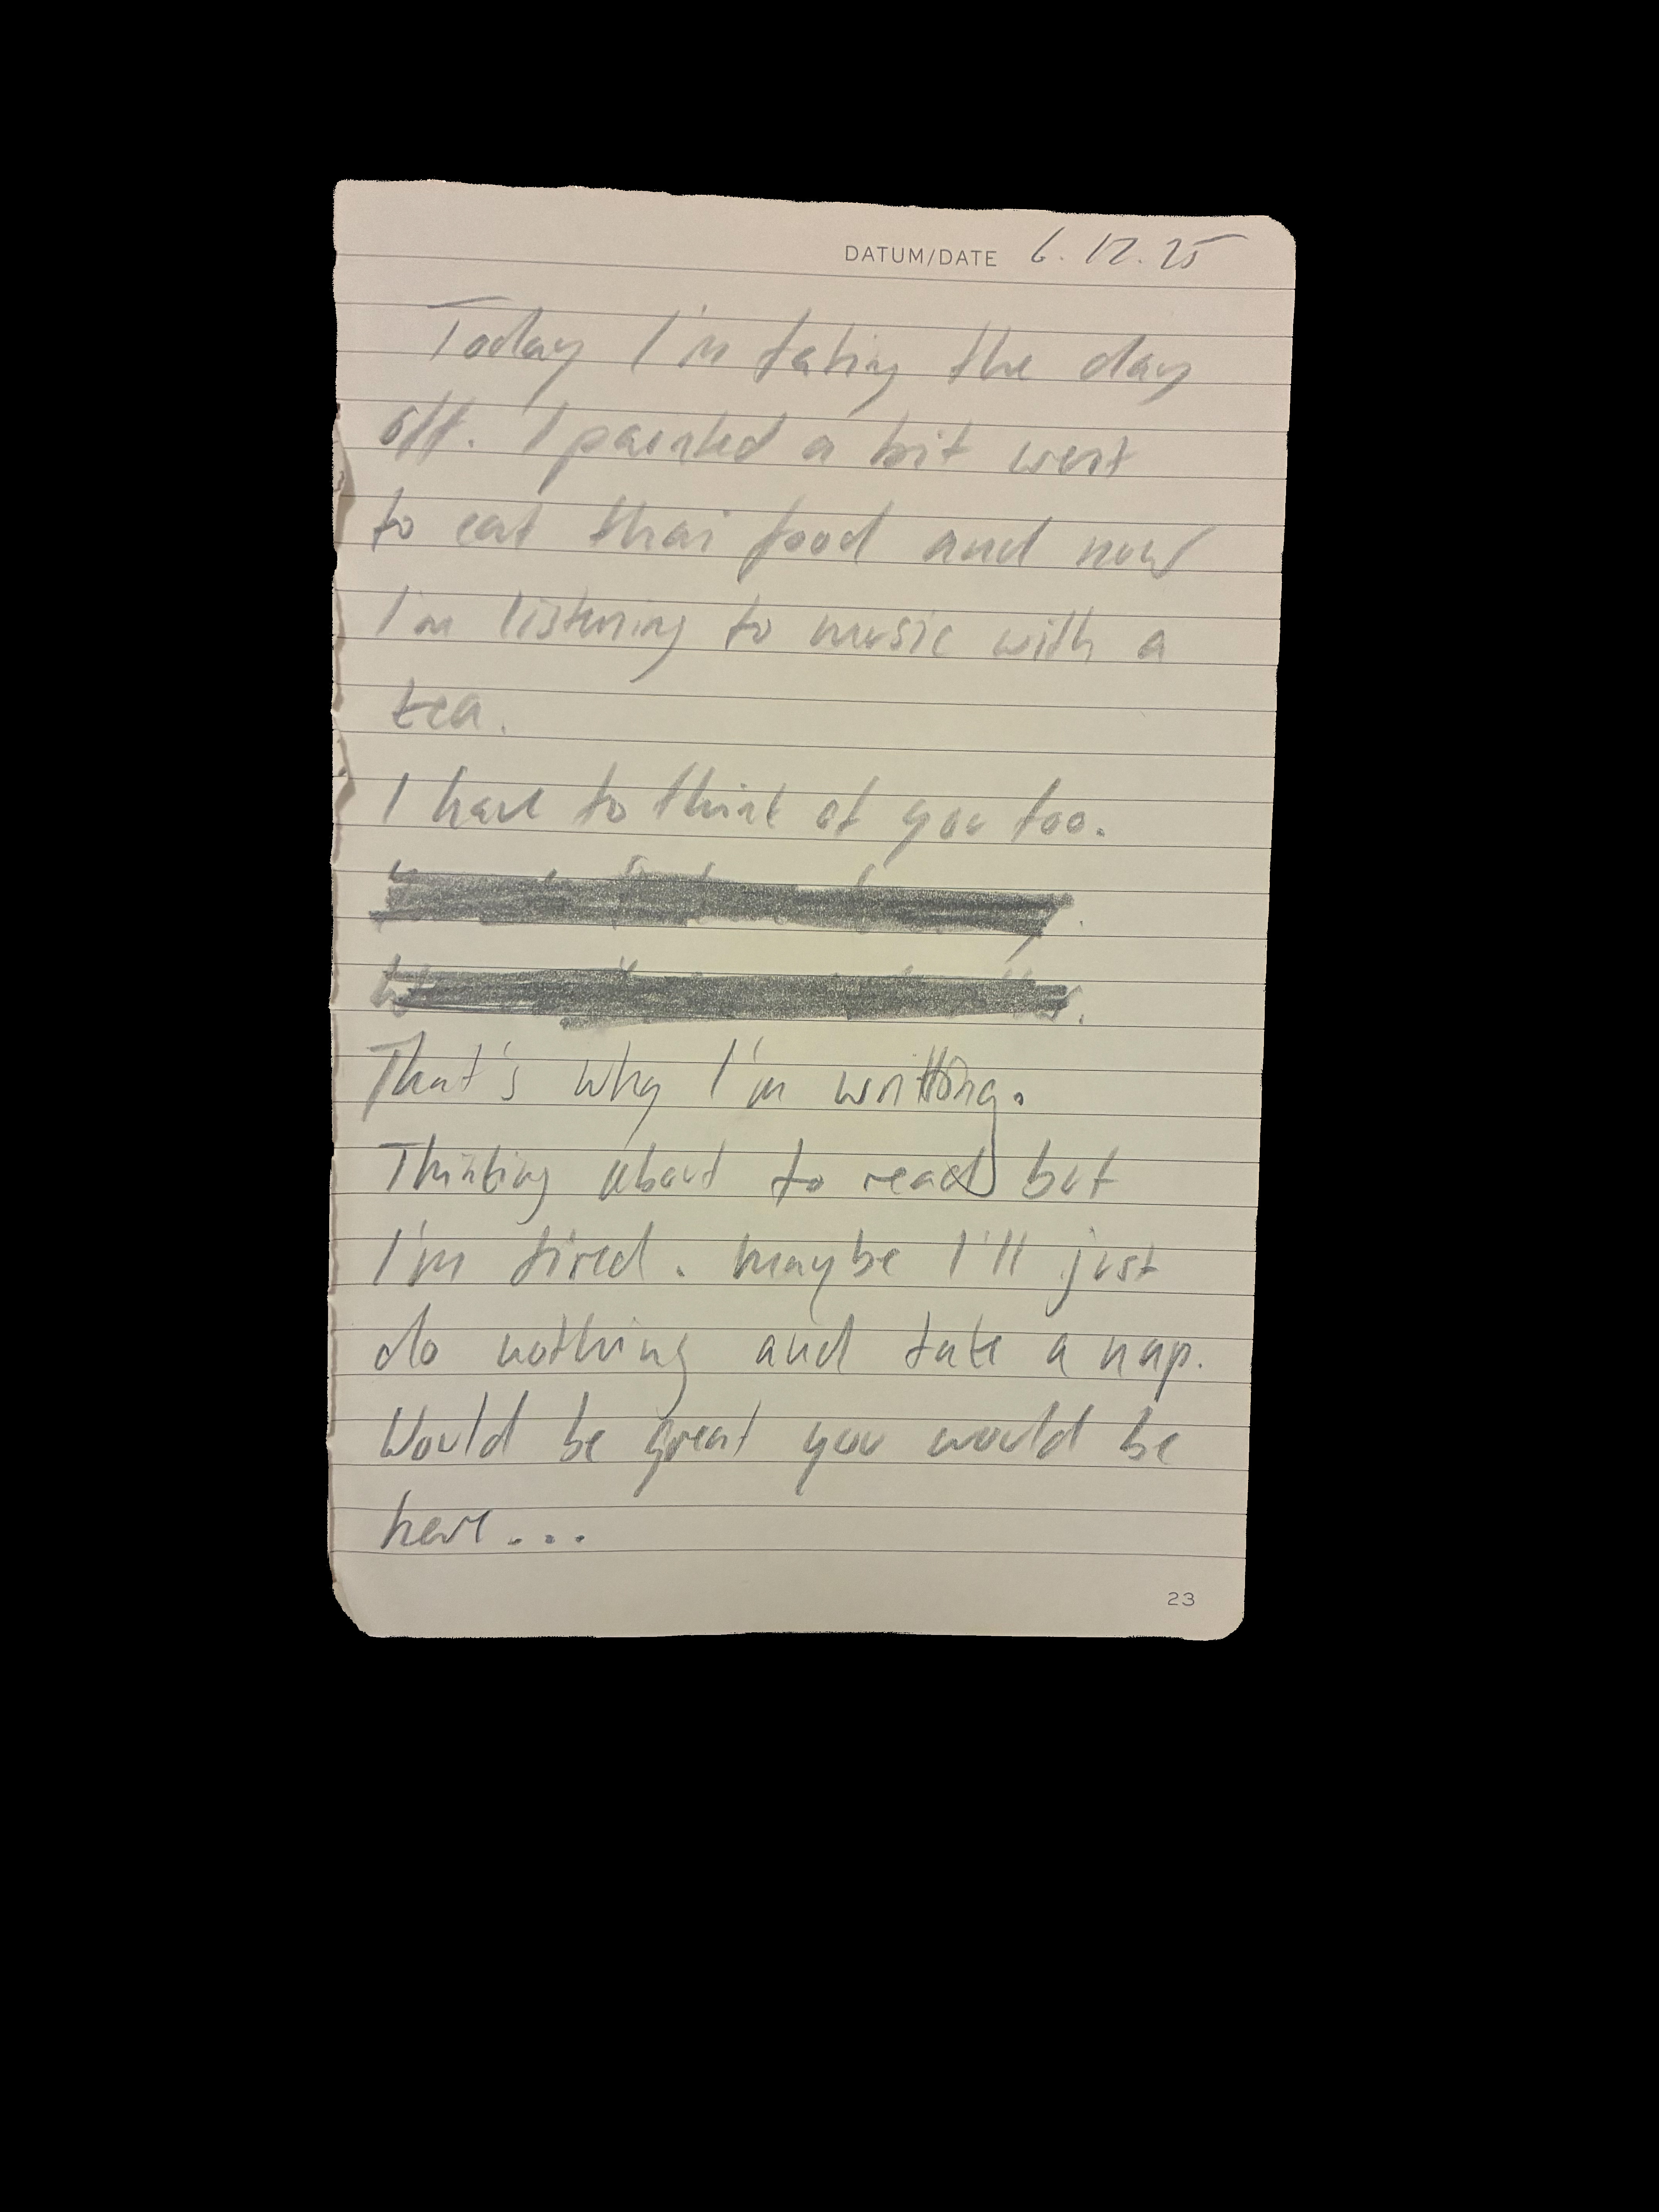 DATUM/DATE 6.12.25
Today I'm taking the day
off. I painted a bit went
to eat thai food and now
I'm listening to music with a
tea.
I have to think of you too.
That's why I'm writting.
Thinking about to read but
I'm tired. maybe I'll just
do nothing and take a nap.
Would be great you would be
here...
23